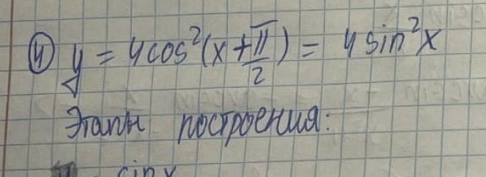 ④ y = 4cos²(x + π/2) = 4 sin²x
Этапы построения:
sin x